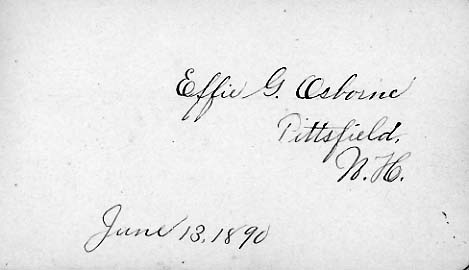 Effie G. Osborne
Pittsfield,
N.H.
June 13, 1890